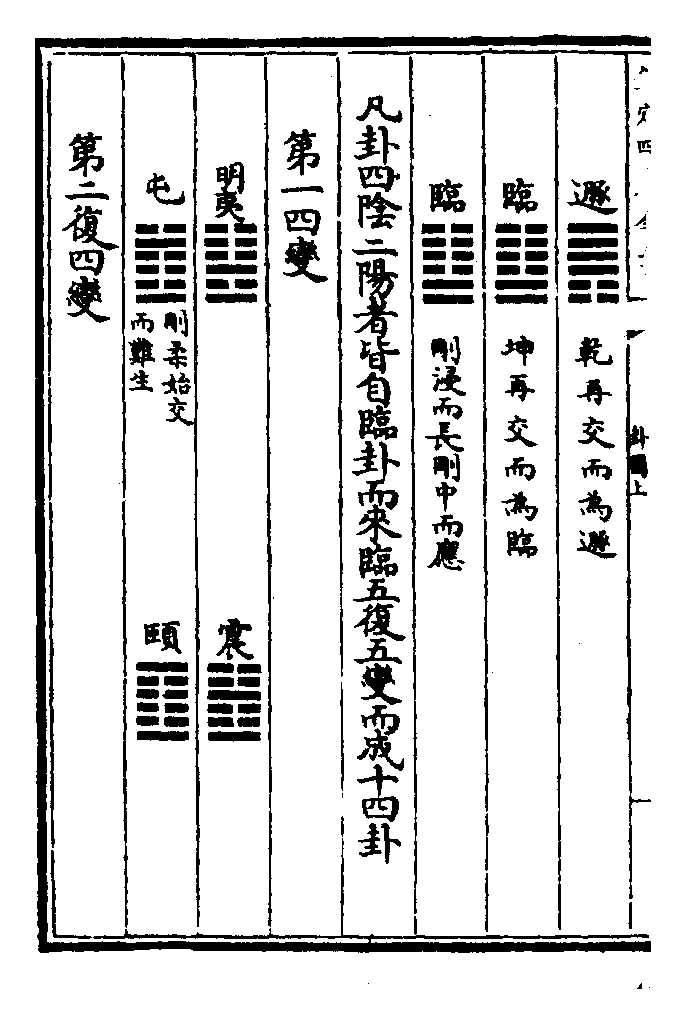 卦圖上
遯 乾再交而為遯
臨 坤再交而為臨
臨 剛浸而長剛中而應
凡卦四陰二陽者皆自臨卦而來臨五復五變而成十四卦
第一四變
明夷 震
屯 剛柔始交
而難生 頤
第二復四變